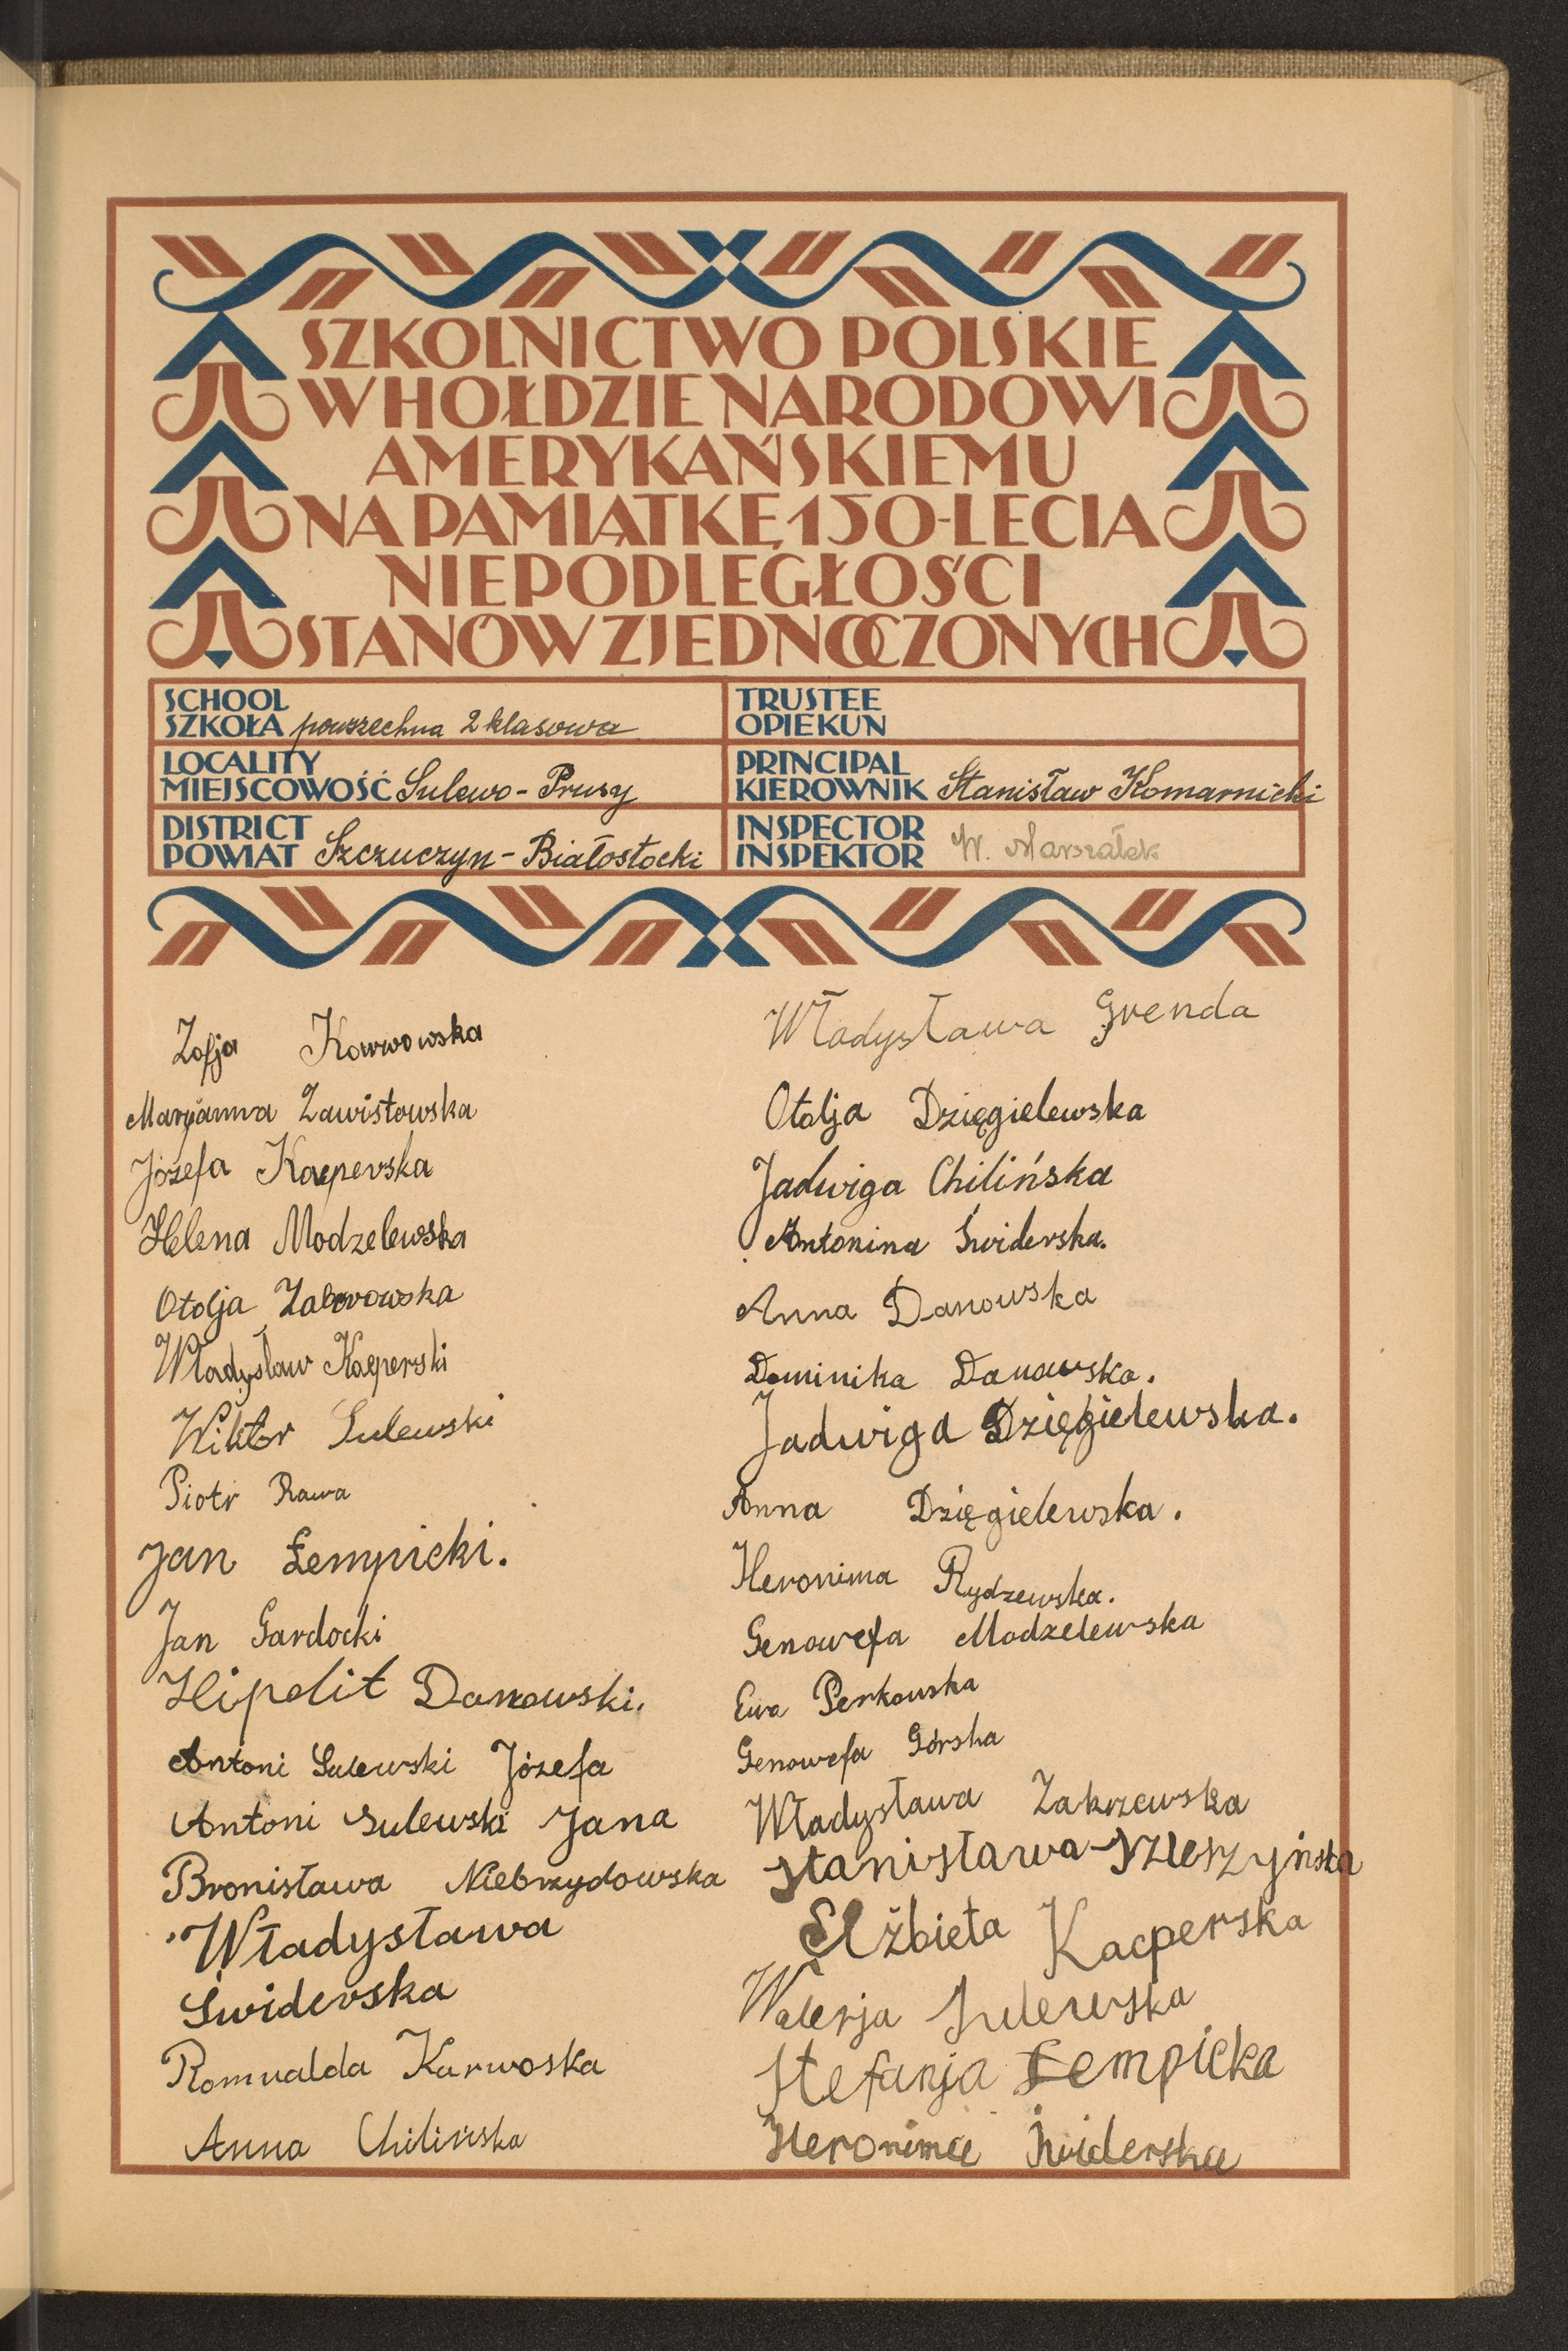 SZKOLNICTWO POLSKIE
W HOŁDZIE NARODOWI
AMERYKAŃSKIEMU
NA PAMIĄTKĘ 150-LECIA
NIEPODLEGŁOŚCI
STANÓW ZJEDNOCZONYCH
SCHOOL
SZKOŁA powszechna 2 klasowa
TRUSTEE
OPIEKUN
LOCALITY
MIEJSCOWOŚĆ Sulewo-Prusy
PRINCIPAL
KIEROWNIK Stanisław Komarnicki
DISTRICT
POWIAT Szczuczyn-Białostocki
INSPECTOR
INSPEKTOR W. Marszałek
Zofja Karwowska
Maryanna Zawistowska
Józefa Kacperska
Helena Modzelewska
Otolja Zaborowska
Władysław Kacperski
Wiktor Sulewski
Piotr Rawa
Jan Łempicki.
Jan Gardocki
Hipolit Danowski.
Antoni Sulewski Józefa
Antoni Sulewski Jana
Bronisława Niebrzydowska
Władysława
Świderska
Romualda Karwoska
Anna Chilińska
Władysława Grenda
Otolja Dzięgielewska
Jadwiga Chilińska
Antonina Świderska.
Anna Danowska
Dominika Danowska.
Jadwiga Dzięgielewska.
Anna Dzięgielewska.
Heronima Rydzewska.
Genowefa Modzelewska
Ewa Perkowska
Genowefa Górska
Władysława Zakrzewska
Stanisława
Elżbieta Kacperska
Walerja Sulewska
Stefanja Łempicka
Heronima Świderska